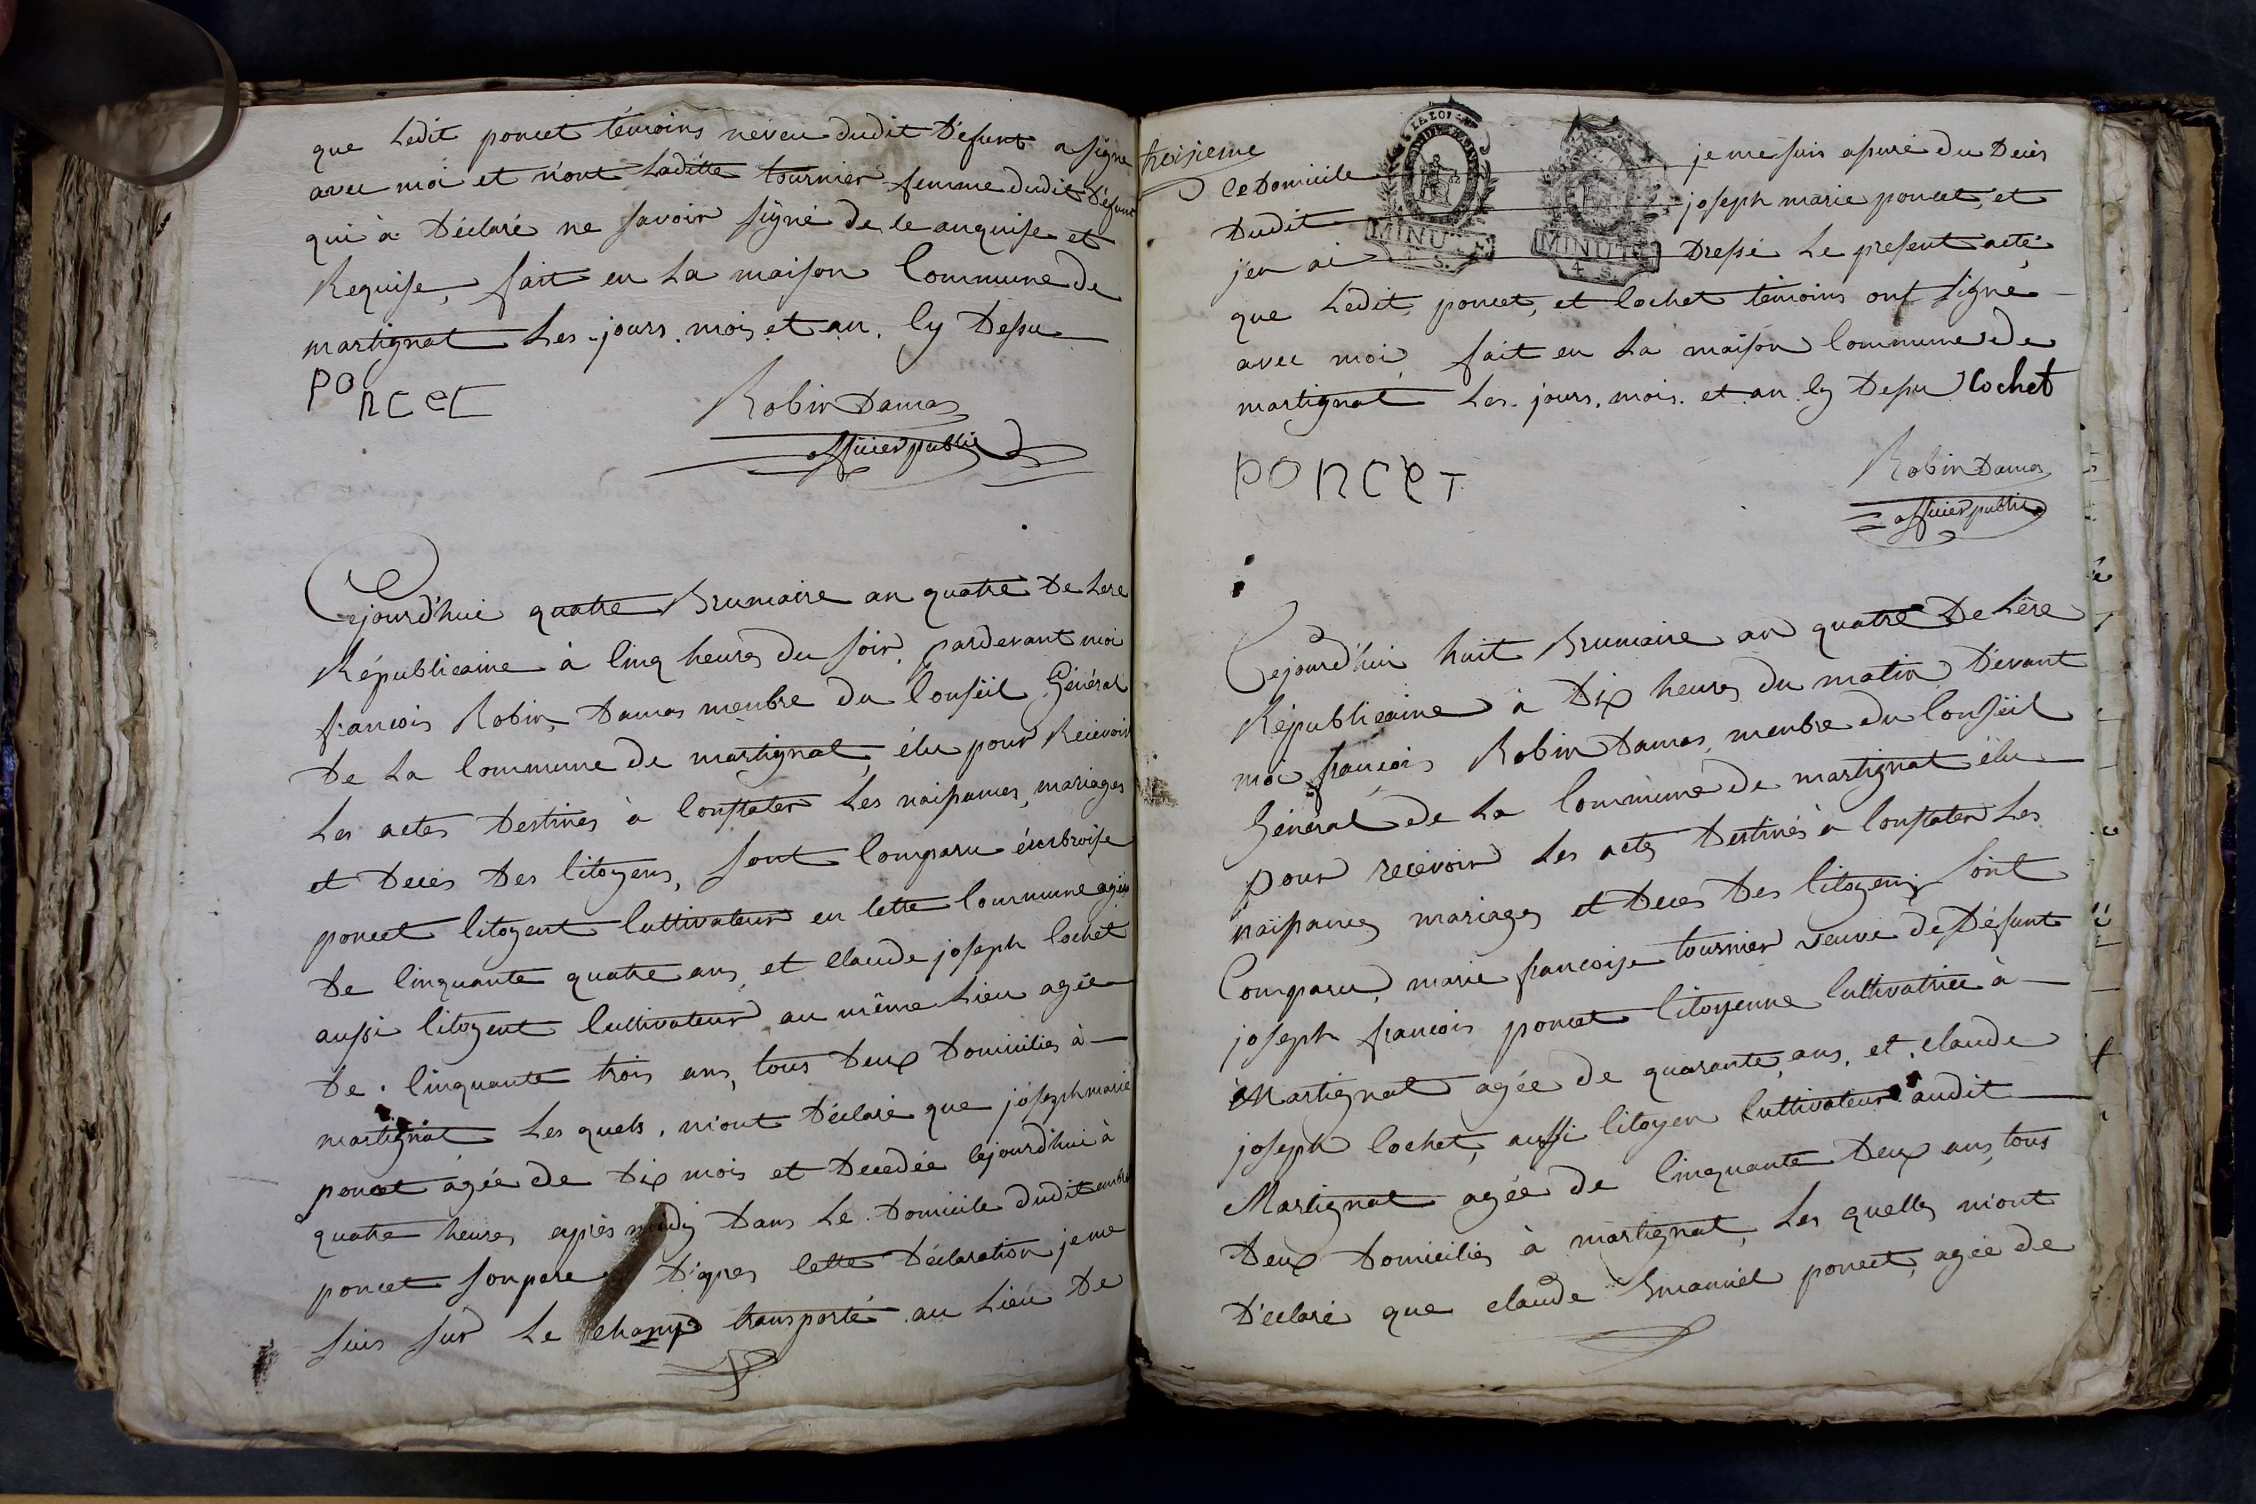 que Ledit poncet témoins neveu dudit Défunt a signe
avec moi et n'ont Laditte tournier femme dudit Défunt
qui à Déclaré ne savoir signé de le anquise et
Requise, fait en La maison Commune de
martignat Les jours mois et an. Cy Dessu
PONCET
Robin Damas
officier public
Cejourd'hui quatre Brumaire an quatre De Lere
Républicaine à Cinq heures du soir, pardevant moi
francois Robin Damas membre du Conseil Général
De La Commune de martignat, élu pour Recevoir
Les actes Destinés à Constater Les naissances, mariages
et Decès Des Citoyens, sont Comparu
poncet Citoyent Cultivateur en Cette Commune agée
De Cinquante quatre ans, et claude joseph Cochet
aussi Citoyent Cultivateur au même Lieu agée
De Cinquante trois ans, tous Deux Domiciliés à
martignat Les quels, m'ont Déclaré que joseph marie
poncet agée de Dix mois et Decedée Cejourd'hui à
quatre heures après midy Dans Le Domicile dudit
poncet son pere D'apres Cette Déclaration je me
suis sur Le Champ transporté au Lieu De
troisieme
Ce Domicile je me suis assuré du Decès
Dudit joseph marie poncet, et
j'en ai Dressé Le present acte,
LA LOI
MINUTE
4 S.
MINUTE
4 S.
que Ledit poncet, et Cochet témoins ont signe
avec moi, fait en La maison Commune de
martignat Les jours. mois. et an. Cy Dessu Cochet
PONCET
Robin Damas
officier public
Cejourd'hui huit Brumaire an quatre De Lère
Républicaine à Dix heures du matin Devant
moi françois Robin Damas, membre du Conseil
Général de La Commune de martignat élu
pour recevoir Les actes Destinés à Constater Les
naissances mariages et Deces Des Citoyens sont
Comparu, marie francoise tournier veuve de Défunt
joseph francois poncet Citoyenne Cultivatrice à
Martignat agée de quarante ans, et claude
joseph Cochet, aussi Citoyen Cultivateur audit
Martignat agée de Cinquante Deux ans, tous
Deux Domiciliés à martignat, Les quelles m'ont
Déclaré que claude Emanuel poncet, agée de